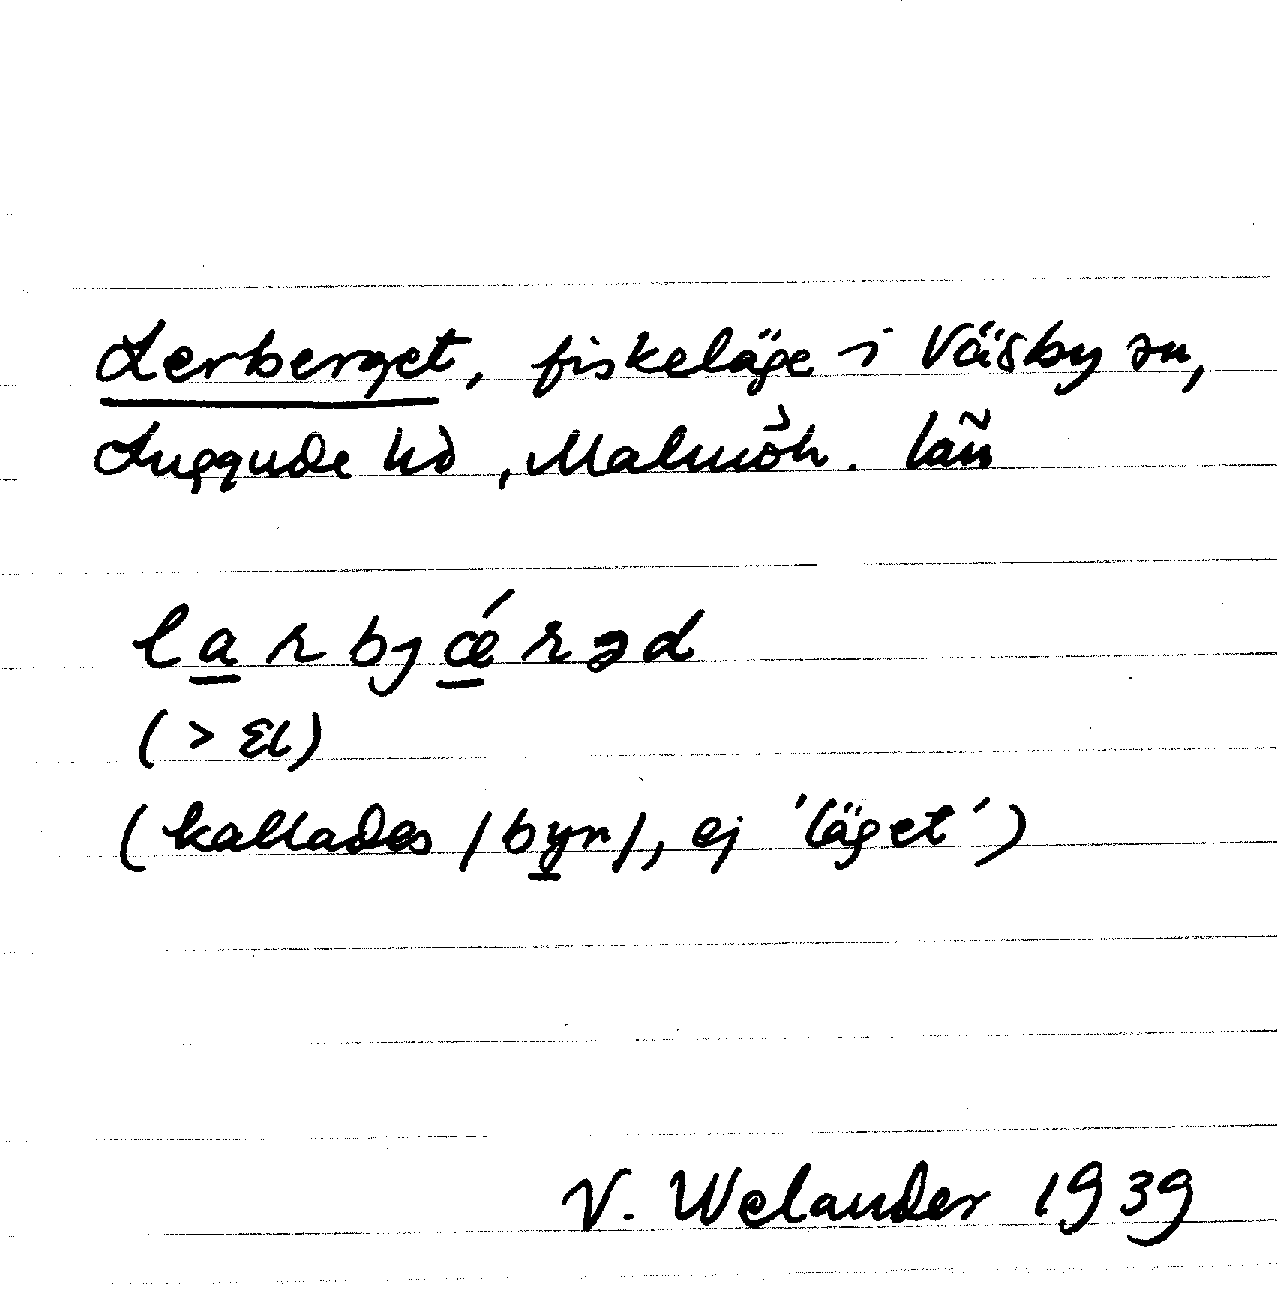 Lerberget, fiskeläge i Väsby sn,
Luggude hd, Malmöh. län
larbjǽrəd
(> εl)
(kallades /byn/, ej 'läget')
V. Welander 1939